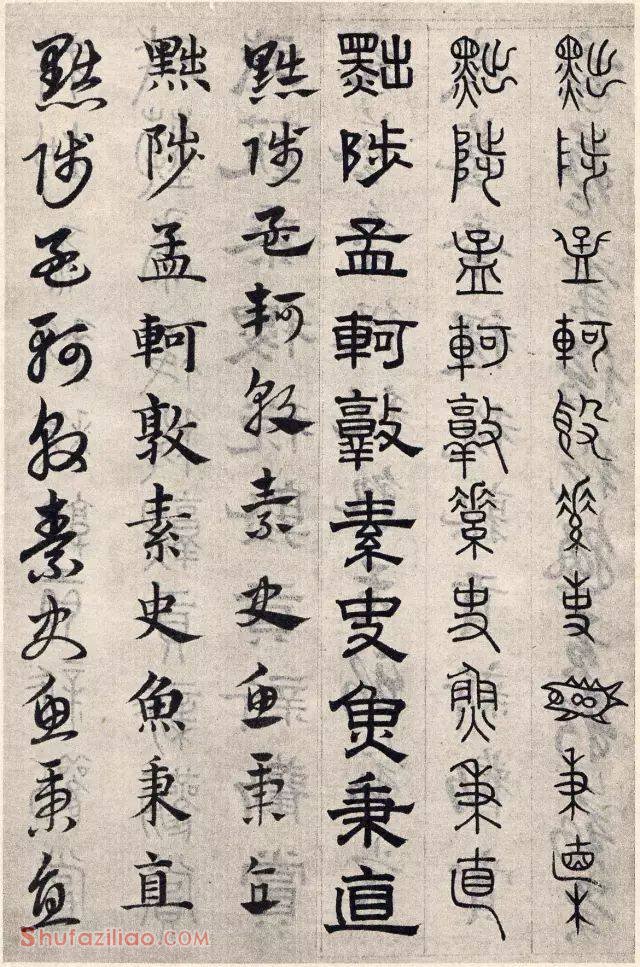 黜陟孟軻敦素史魚秉直
黜陟孟軻敦素史魚秉直
黜陟孟軻敦素史魚秉直
黜陟孟軻敦素史魚秉直
黜陟孟軻敦素史魚秉直
黜陟孟軻敦素史魚秉直
Shufaziliao.COM